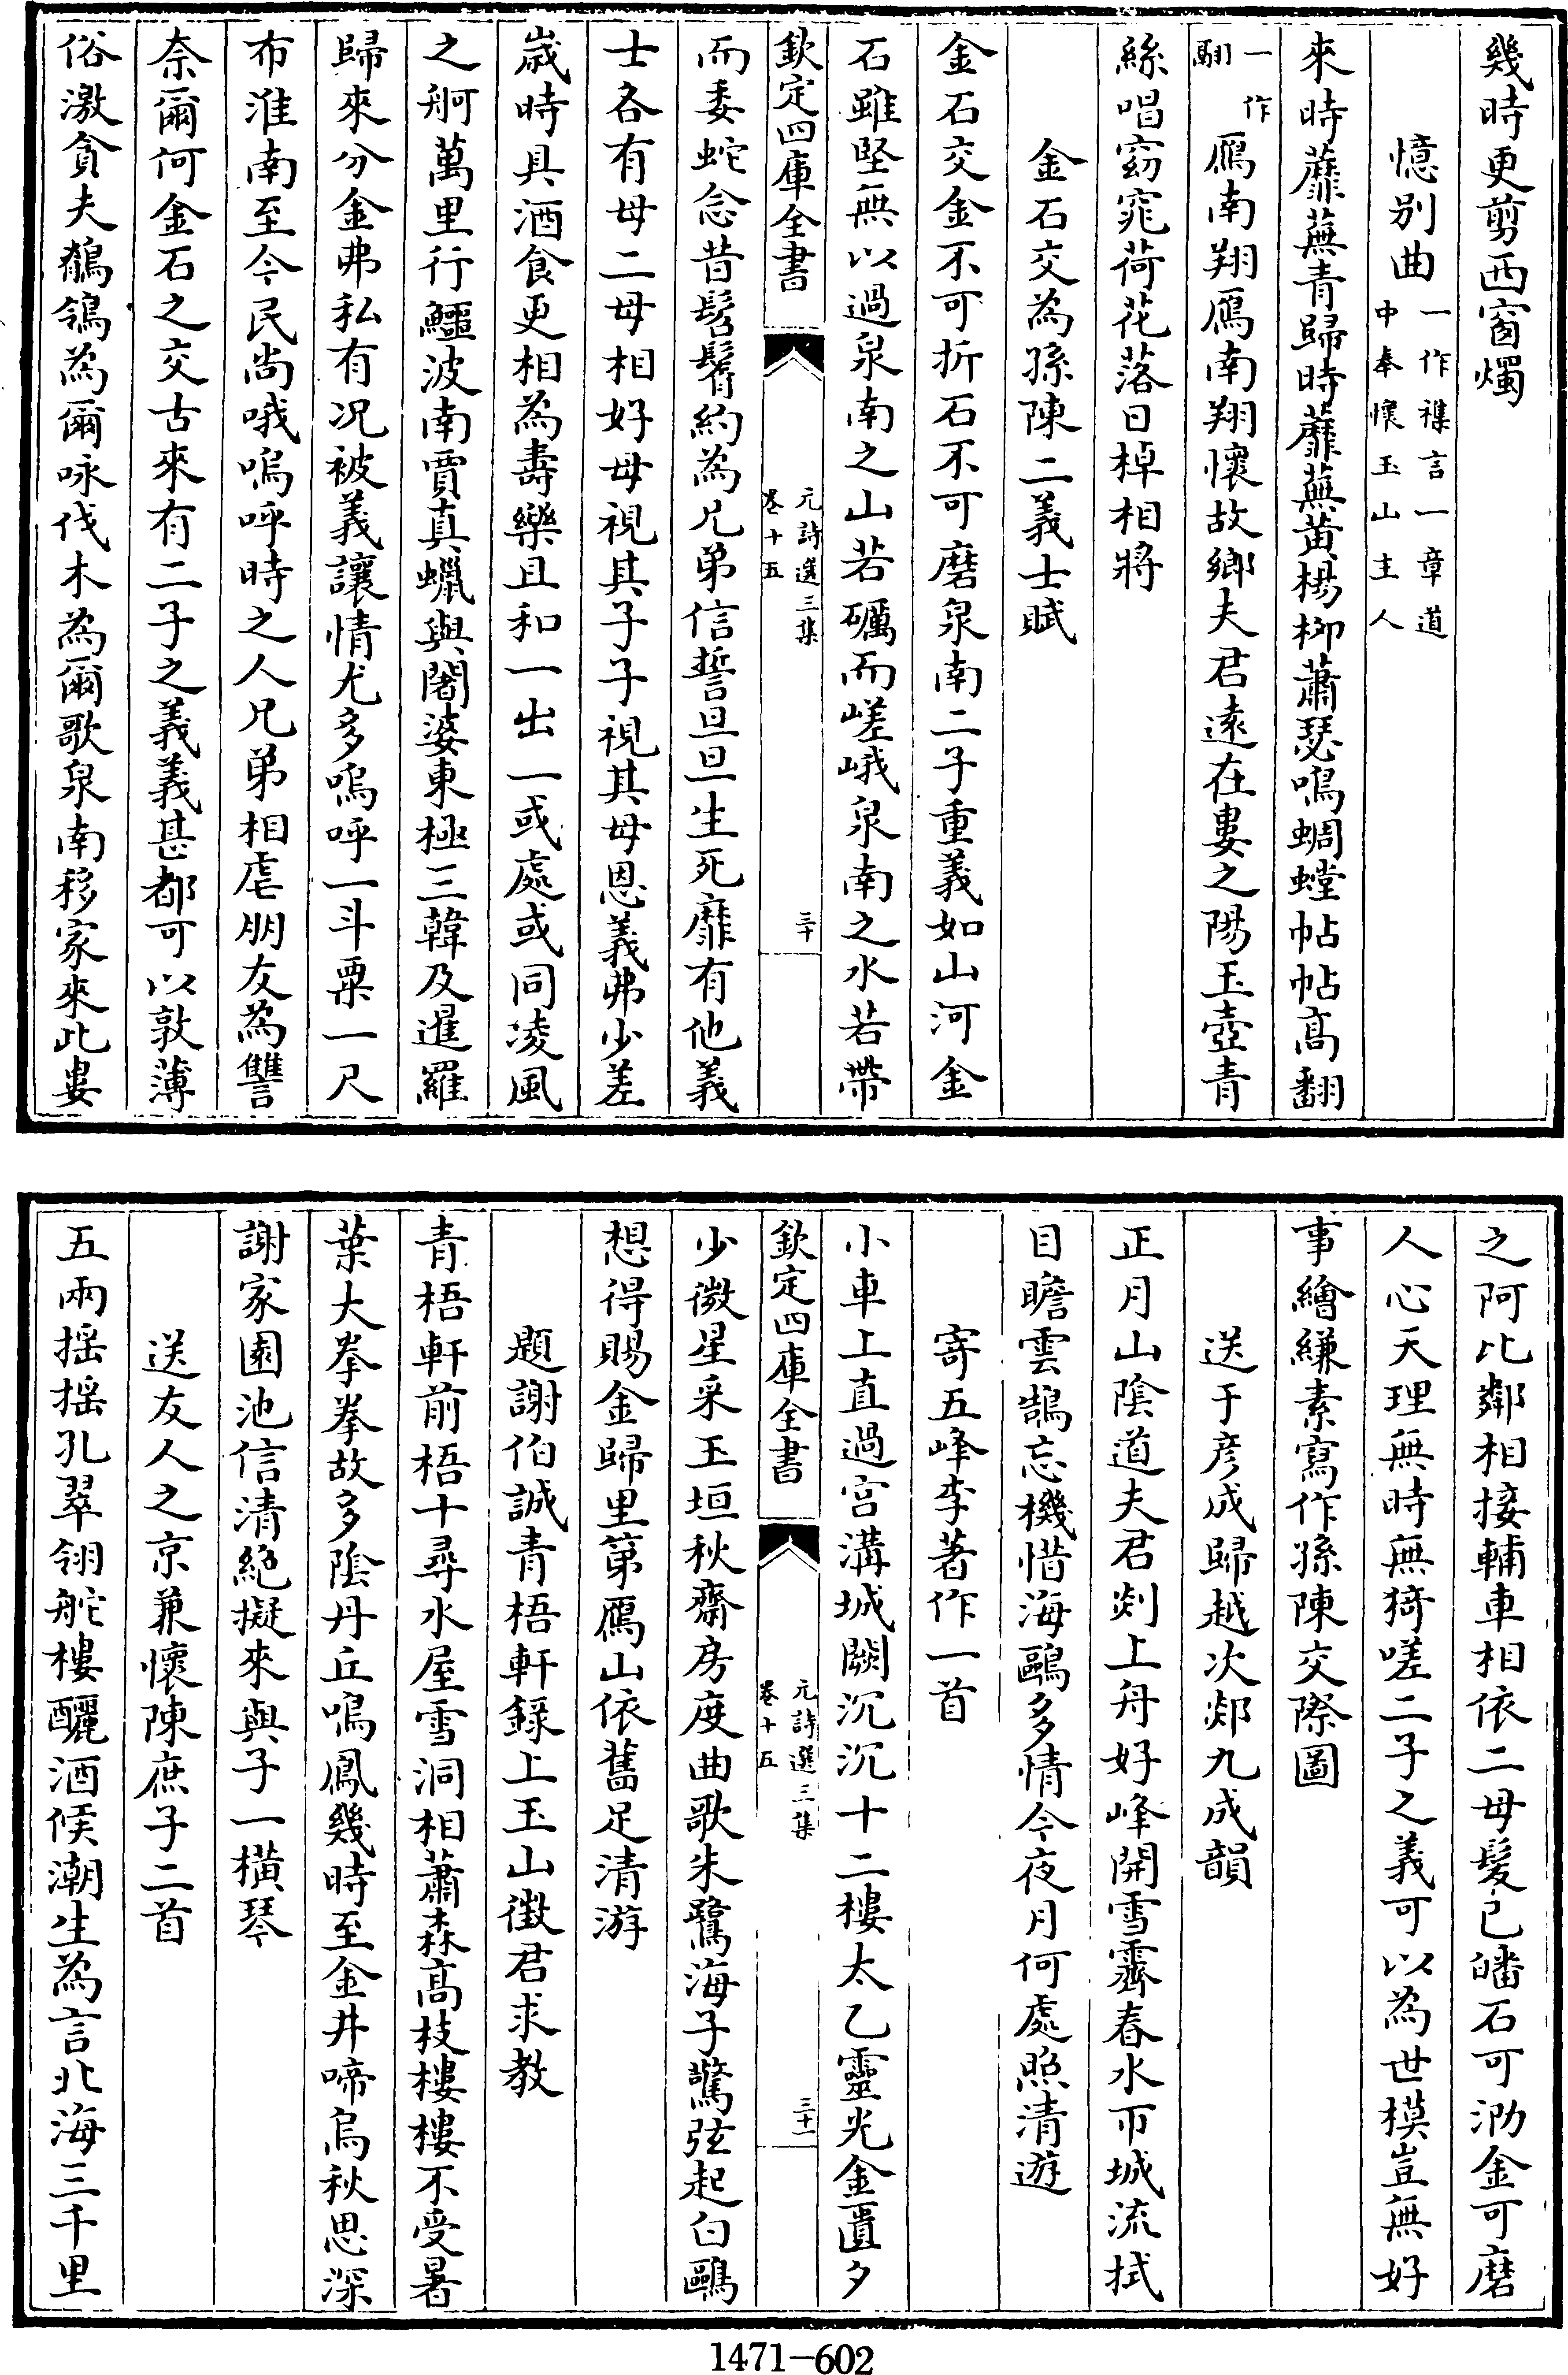 幾時更剪西窗燭
憶别曲一作襍言一章道中奉懷玉山主人
來時蘼蕪青歸時蘼蕪黄楊柳蕭瑟鳴蜩螗帖帖髙翻
一作翮雁南翔雁南翔懷故鄉夫君遠在婁之陽玉壺青
絲唱窈窕荷花落日棹相將
金石交為孫陳二義士賦
金石交金不可折石不可磨泉南二子重義如山河金
石雖堅無以過泉南之山若礪而嵯峨泉南之水若帶
欽定四庫全書
元詩選三集
卷十五
三十
而委蛇念昔髫鬌約為兄弟信誓旦旦生死靡有他義
士各有母二母相好母視其子子視其母恩義弗少差
歲時具酒食更相為壽樂且和一出一或處或同凌風
之舸萬里行鱷波南賈真蠟與闍婆東極三韓及暹羅
歸來分金弗私有况被義讓情尤多嗚呼一斗粟一尺
布淮南至今民尚哦嗚呼時之人兄弟相虐朋友為讐
奈爾何金石之交古來有二子之義義甚都可以敦薄
俗激貪夫鶺鴒為爾咏伐木為爾歌泉南移家來此婁
之阿比鄰相接輔車相依二母髮已皤石可泐金可磨
人心天理無時無猗嗟二子之義可以為世模豈無好
事繪縑素寫作孫陳交際圖
送于彦成歸越次郯九成韻
正月山陰道夫君剡上舟好峰開雪霽春水帀城流拭
目瞻雲鵠忘機惜海鷗多情今夜月何處照清遊
寄五峰李著作一首
小車上直過宫溝城闕沉沉十二樓太乙靈光金匱夕
欽定四庫全書
元詩選三集
卷十五
三十一
少微星采玉垣秋齋房度曲歌朱鷺海子驚弦起白鷗
想得賜金歸里第雁山依舊足清游
題謝伯誠青梧軒錄上玉山徴君求教
青梧軒前梧十尋水屋雪洞相蕭森髙枝樓樓不受暑
葉大拳拳故多陰丹丘鳴鳳幾時至金井啼烏秋思深
謝家園池信清絶擬來與子一横琴
送友人之京兼懷陳庶子二首
五兩揺揺孔翠翎舵樓釃酒候潮生為言北海三千里
1471-602